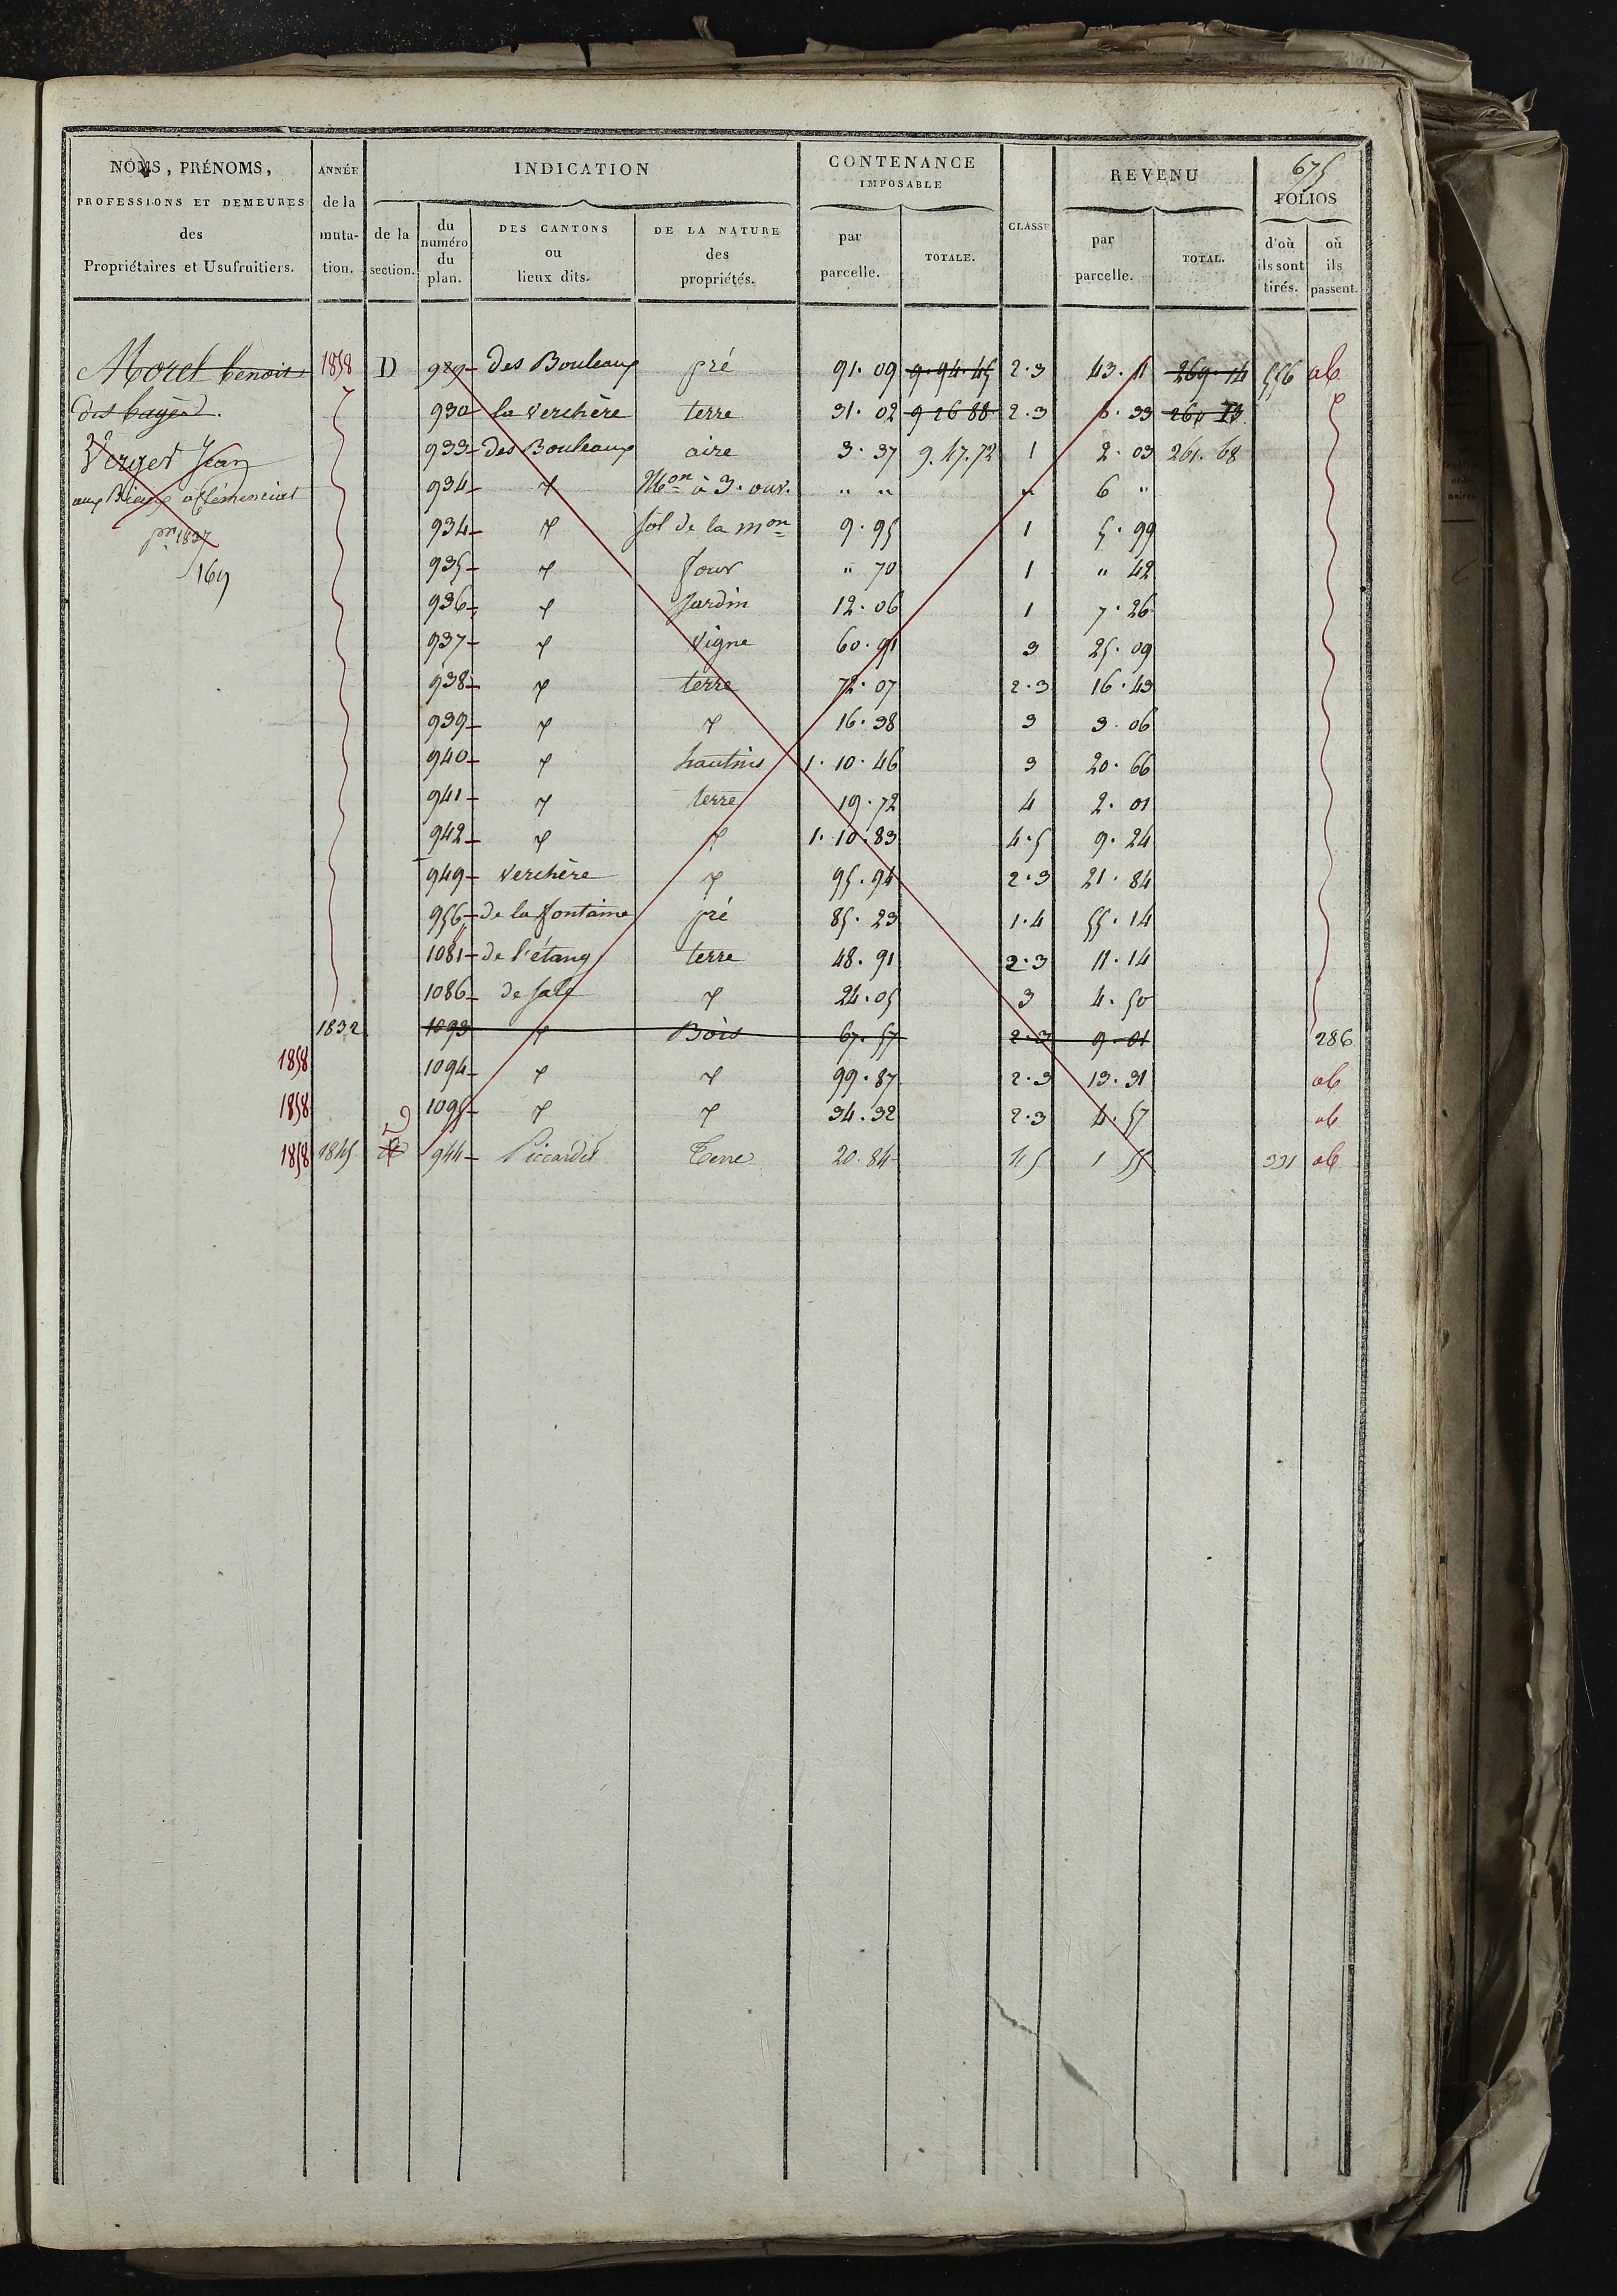 675
NOMS, PRÉNOMS, PROFESSIONS ET DEMEURES des Propriétaires et Usufruitiers.
ANNÉE de la muta-tion.
INDICATION
de la section.
du numéro du plan.
DES CANTONS ou lieux dits.
DE LA NATURE des propriétés.
CONTENANCE IMPOSABLE
par parcelle.
TOTALE.
CLASSE
REVENU
par parcelle.
TOTAL.
FOLIOS
d'où ils sont tirés.
où ils passent.
Morel benoit 1858 D 929 des Bouleaux pré 91.09 9.94.45 2.3 43.11 269.14 556 ab
des bages. 930 la Verchère terre 31.02 9 26 88 2.3 6.33 260 13
Verget Jean 933 des Bouleaux aire 3.37 9.47.72 1 2.03 261.68
aux 934 Mon à 3. ouv. " " " 6 "
pr 1837 934 sol de la mon 9.95 1 5.99
169 935 four " 70 1 " 42
936 Jardin 12.06 1 7.26
937 Vigne 60.91 3 25.09
938 terre 72.07 2.3 16.43
939 16.38 3 3.06
940 hautins 1.10.46 3 20.66
941 terre 19.72 4 2.01
942 1.10.83 4.5 9.24
949 Verchère 95.94 2.3 21.84
956 de la fontaine pré 85.23 1.4 55.14
1081 de l'étang terre 48.91 2.3 11.14
1086 de Sale 24.05 3 4.50
1832 1093 Bois 67.57 2.3 9.01 286
1858 1094 99.87 2.3 13.31 ab
1858 1095 34.32 2.3 4.57 ab
1858 1845 944 Piccardet Terre 20.84 4 5 1 55 331 ab